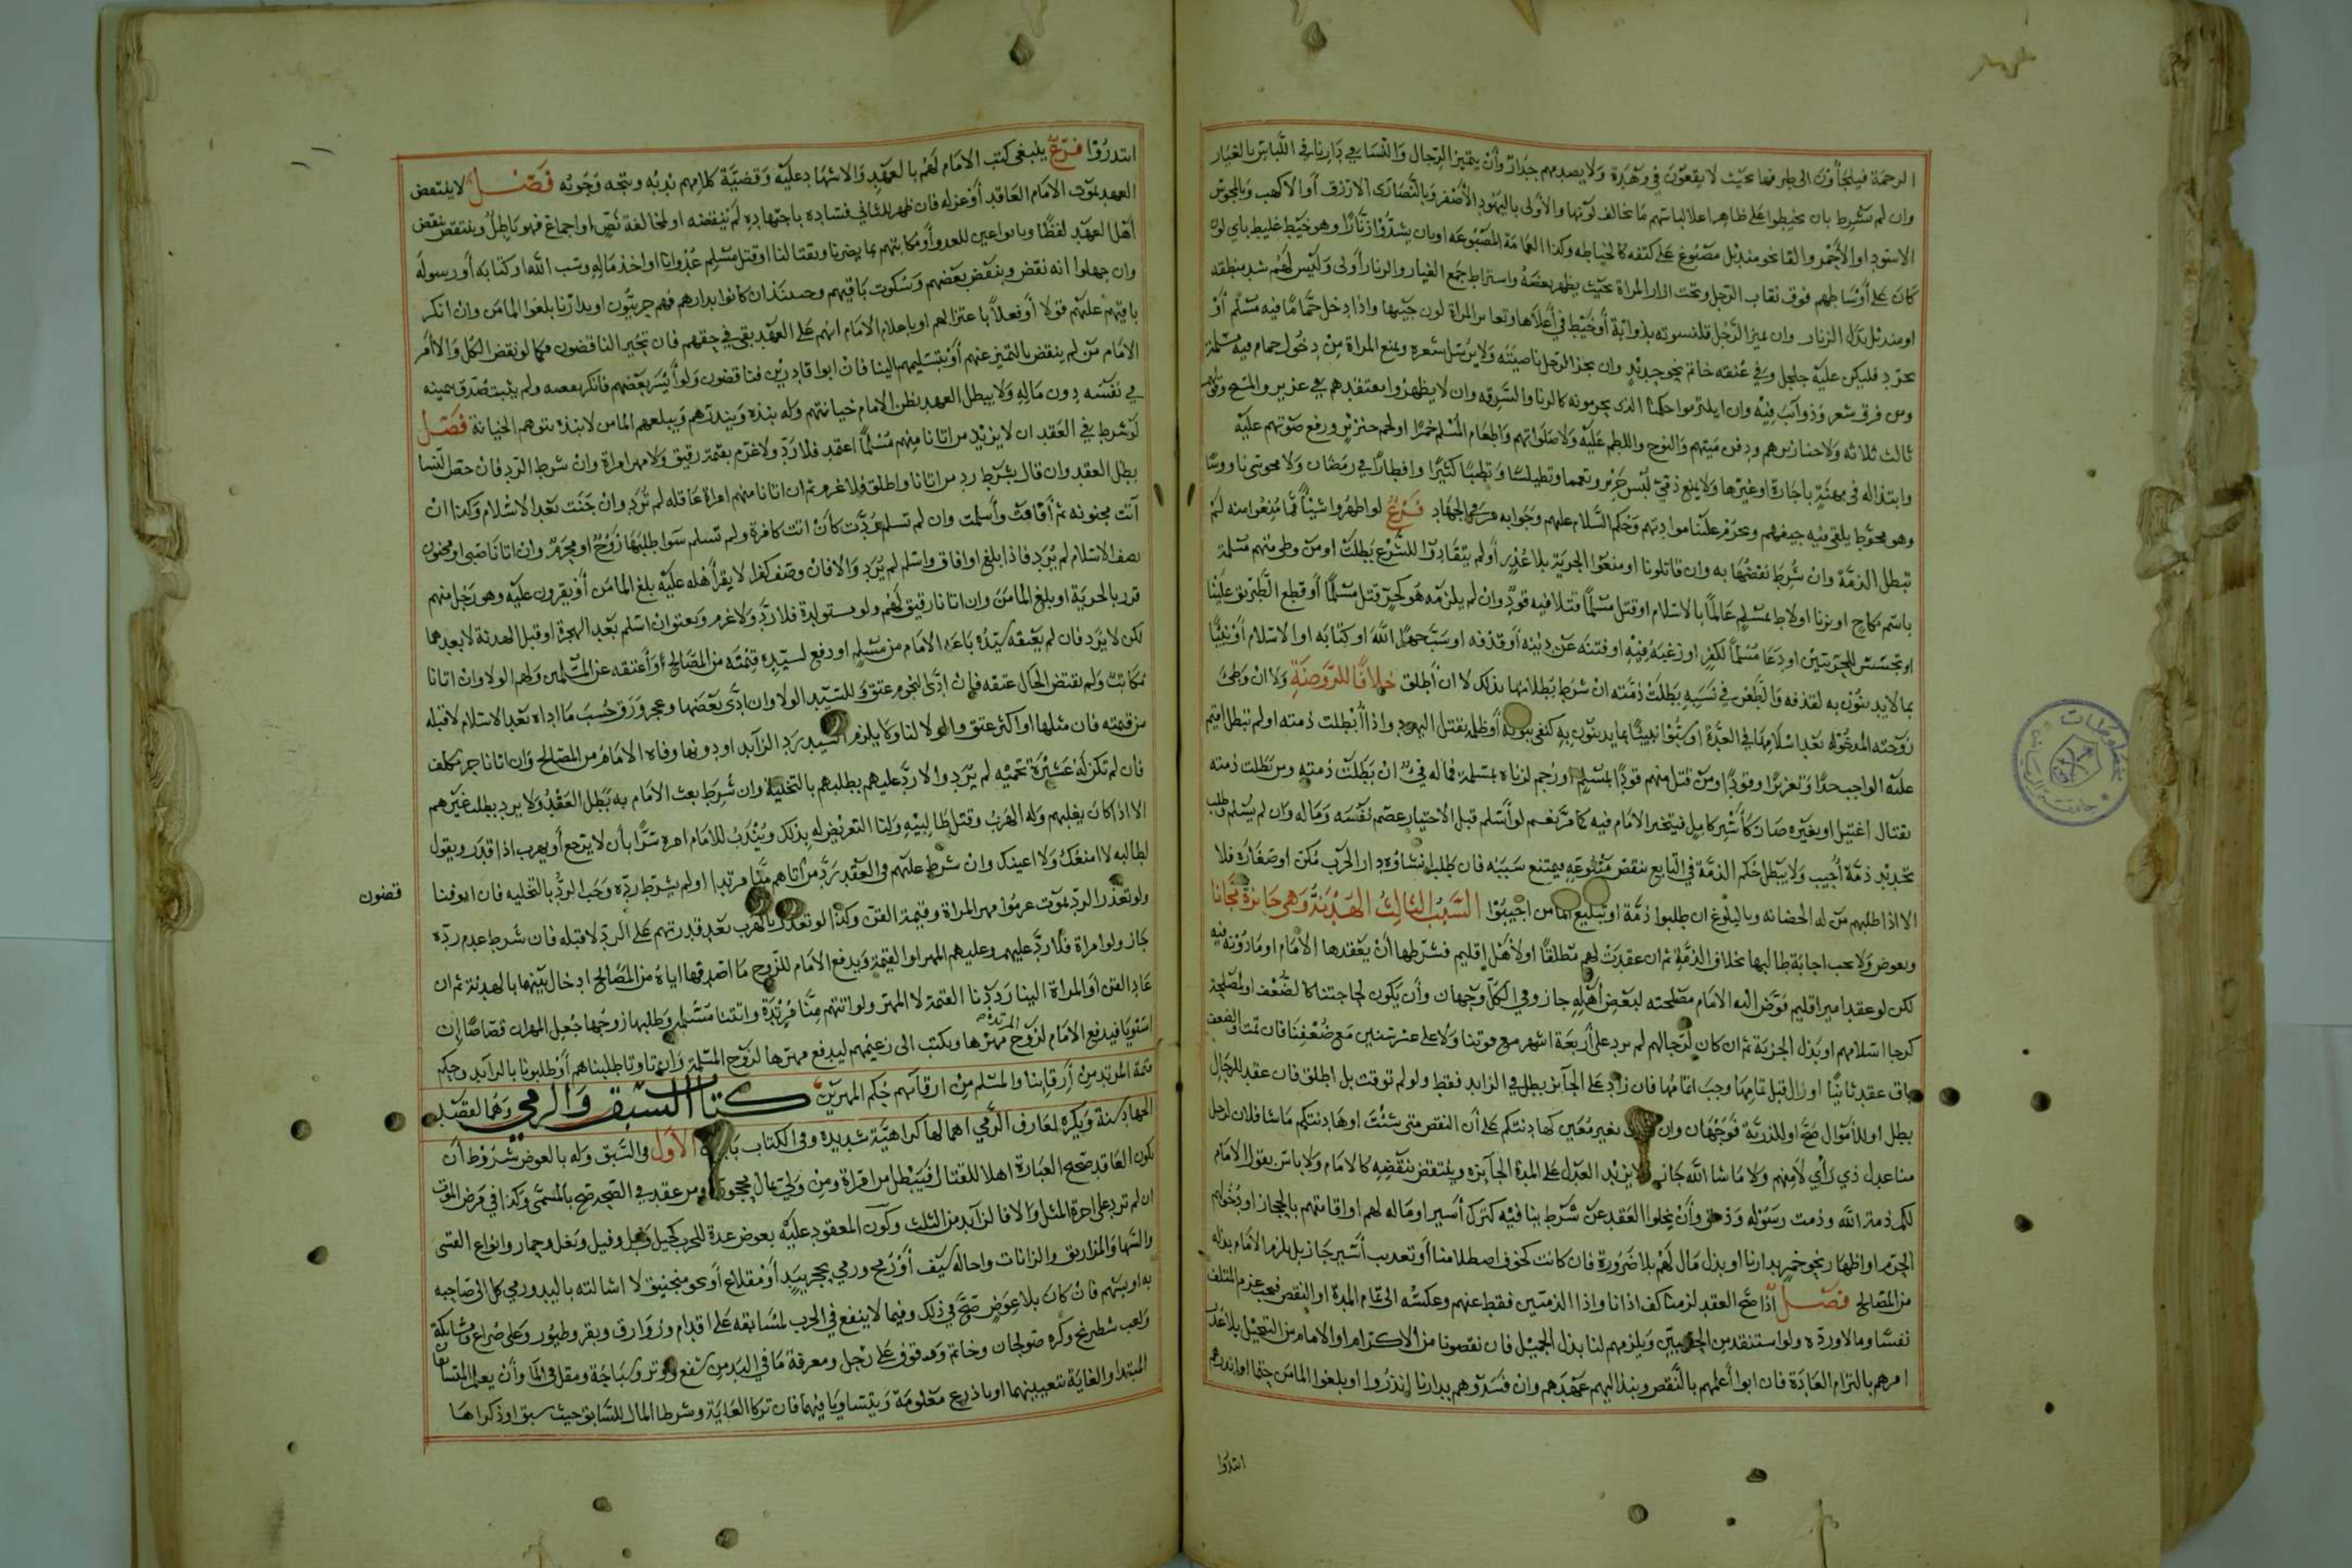 الرحمة فيلجأون الى طرفها بحيث لا يقعون في وهدة ولا يصدمهم جدار وأن يتميز الرجال والنساء في دارنا في اللباس بالغيار
وان لم يشرط بان يخيطوا على ظاهر اعلا لباسهم ما يخالف لونها والأولى باليهود الأصفر وبالنصارى الازرق أو الاكهب وبالمجوس
الاسود او الأحمر والقا نحو منديل مصبوغ على كتفه كالخياطه وكذا العمامة المصبوغه او بان يشدوا زنارا وهو خيط غليظ باي لون
كان على أوساطهم فوق ثقاب الرجل وتحت ازار المراة بحيث يظهر بعضه واشتراط جمع الغيار والزنار أولى وليس لهم شد منطقه
او منديل بدل الزنار وان يميز الرجل قلنسوته بذوابة أو خيط في أعلاها وتعاير المراة لون جيبها واذا دخل حماما فيه مسلم أو
تجرد فليكن عليه جلجل وفي عنقه خاتم نحو حديد وان يجز الرجل ناصيته ولا يرسل شعره ويمنع المراة من دخول حمام فيه مسلمة
ومن فرق شعر وذوائب فيه وان يلتزموا حكمنا الذى يحرمونه كالزنا والسرقه وان لا يظهروا معتقدهم في عزير والمسيح
ثالث ثلاثه ولا جنائزهم ودفن ميتهم والنوح واللطم عليه ولا صلواتهم واطعام المسلم خمرا او لحم خنزير ورفع صوتهم عليه
وابتذاله في مهنة باجارة او غيرها ولا يمنع ذمي لبس حرير وتعمما وتطيلسا وتطيبا كثيرا وافطارا في رمضان ولا مجوسي ناووسا
وهو محوط يلقى فيه جيفهم ويحرم علينا موادتهم وحكم السلام عليهم وجوابه مر في الجهاد فرع لو اظهروا شيئا مما يمنعوا منه لم
تبطل الذمة وان شرط نقضها به وان قاتلونا او منعوا الجزية بلا عذر أو لم ينقادوا للشرع بطلت او من وطى منهم مسلمة
باسم نكاح او بزنا او لاط بمسلم عالما بالاسلام او قتل مسلما قتلا فيه قود وان لم يلزمه هو كحر قتل مسلما أو قطع الطريق علينا
او تجسس للحربيين او دعا مسلما لكفر او رغبه فيه او فتنه عن دينه أو قذفه او سب جهرا الله او كتابه او الاسلام أو نبيا
بما لا يدينون به لقذفه والطعن في نسبه بطلت ذمته ان شرط بطلانها بذلك لا ان أطلق خلافا للروضة ولا ان وطئ
زوجته المدخوله بعد اسلامها في العدة او سبوا نبينا بما يدينون به كنفى نبوته أو ظلمه بقتل اليهود واذا أبطلت ذمته او لم تبطل اقيم
عليه الواجب حدا وتعزيرا وقودا ومن قتل منهم قودا بمسلم او رجم لزناه بمسلمة فماله في ان بطلت ذمته ومن بطلت ذمته
بقتال اغتيل او بغيره صار كأسير كامل فيتخير الامام فيه كما مر نعم لو أسلم قبل الاختيار عصم نفسه وماله وان لم يسلم وطلب
تجديد ذمة أجيب ولا يبطل حكم الذمة في التابع بنقض متبوعه ويمتنع سببه فان طلب انشاؤه دار الحرب مكن او صغاره فلا
الا اذا طلبهم من له الحضانه وبالبلوغ ان طلبوا ذمة او تبليغ المامن اجيبوا السبب الثالث الهدنة وهي جائزة مجانا
وبعوض ولا يجب اجابة طالبها بخلاف الذمة ثم ان عقدت لهم مطلقا او لأهل اقليم فشرطها أن يعقدها الامام او ماذونه فيه
لكن لو عقد امير اقليم فوض اليه الامام مصلحته لبعض أهله جاز وفي الكل وجهان وأن يكون لحاجتنا كالضعف او لمصلحة
كرجا اسلامهم او بذل الجزية ثم ان كان لرجالهم لم يزد على أربعة اشهر مع قوتنا ولا على عشر سنين مع ضعفنا فان تمت والضعف
باق عقد ثانيا او زال قبل تمامها وجب اتمامها فان زاد على الجائز بطل في الزايد فقط ولو لم توقت بل اطلق فان عقد للرجال
بطل او للأموال صح او للذرية فوجهان وان بغير معين كهادنتكم على أن النقض متى شئت او هادنتكم ماشا فلان لرجل
منا عدل ذي رأي لا منهم ولا ما شا الله جاز ولا يزيد العدل على المدة الجائزه وينتقض بنقضه كالامام ولا باس بقول الامام
لكم ذمة الله وذمت رسوله وذمتي وأن يخلوا العقد عن شرط ينافيه كترك أسير او ماله لهم او اقامتهم بالحجاز او دخولهم
الحرم او اظهار نحو خمر بدارنا او بذل مال لهم بلا ضرورة فان كانت كخوف اصطلامنا أو تعذيب أسير جاز بل يلزم الامام بذله
من المصالح فصل اذا صح العقد لزمنا كف اذانا واذا الذميين فقط عنهم وعكسه الى تمام المدة او النقض فيجب غرم المتلف
نفسا ومالا ورده ولو استنقذ من الحربيين ويلزمهم لنا بذل الجميل فان نقصونا من الاكترام او الامام من التبجيل بلا عذر
امرهم بالتزام العادة فان ابوا أعلمهم بالنقص ونبذ اليهم عهدهم وان فسدوهم بدارنا انذروا او بلغوا المامن حتما او اندرهم
ابتدؤا
ابتدؤا فرع ينبغي كتب الامام لهم بالعهد والاشهاد عليه وقضية كلامهم ندبه ويتجه وجوبه فصل لا ينتقض
العهد بموت الامام العاقد أو عزله فان ظهر للثاني فساده باجتهاده لم ينقضه او لمخالفة نص او اجماع فهو باطل وينتقض بنقض
أهل العهد لفظا وبا نواعين للعدو أو مكاتبتهم بما يضرنا وبقتالنا او قتل مسلم عدوانا او اخذ ماله وسب الله او كتابه أو رسوله
وان جهلوا انه نقض وبنقض بعضهم وسكوت باقيهم وحينئذ ان كانوا بدارهم فهم حربيون او بدارنا بلغوا المامن وان انكر
باقيهم عليهم قولا أو فعلا باعتزالهم او باعلام الامام انهم على العهد بقي في حقهم فان تحير الناقضون فكما لو نقض الكل والا أمر
الامام من لم ينقض بالتميز عنهم أو بتسليمهم الينا فان ابوا قادرين فناقضون ولو أسر بعضهم فانكر بعضه ولم يثبت صدق بيمينه
في نفسه دون ماله ولا يبطل العهد بظن الامام خيانتهم وله نبذه وينذرهم ويبلغهم المامن لا نبذ بتوهم الخيانة فصل
لو شرط في العقد ان لا يزيد من اتانا منهم مسلما اعتمد فلا رد ولا غرم بقيمة رقيق ولا مهر امراة وان شرط الرد فان خص النسا
بطل العقد وان قال بشرط رد من اتانا واطلق فلا غرم ثم ان اتانا منهم امراة عاقله لم ترد وان جنت بعد الاسلام وكذا ان
أتت مجنونه ثم أفاقت وأسلمت وان لم تسلم ردت كأن اتت كافرة ولم تسلم سوا طلبها زوج او محرم وان اتانا صبي او مجنون
يصف الاسلام لم يرد فاذا بلغ او افاق واسلم لم يرد والا فان وصف كفرا لا يقر أهله عليه بلغ المامن أو يقرون عليه وهو رجل منهم
قرر بالجزية او بلغ المامن وان اتانا رقيق لهم ولو مستولدة فلا رد ولا غرم ويعتق ان اسلم بعد الهجرة او قبل الهدنة لا بعدهما
لكن لا يرد فان لم يعتقه سيده باعه الامام من مسلم او دفع لسيده قيمته من المصالح أو أعتقه عن المسلمين ولهم الولا وان اتانا
مكاتب ولم يقتض الحال عتقه فان ادى النجوم عتق وللسيد الولا وان ادى بعضها وعجز ورق حسب ما اداه بعد الاسلام لا قبله
من قيمته فان مثلها او اكثر عتق والولا لنا ولا يلزم السيد رد الزايد او دونها وفاه الامام من المصالح وان اتانا حر مكلف
فان لم تكن له عشيرة تحميه لم يرد والا رد عليهم بطلبهم بالتخلية وان شرط بعث الامام به بطل العقد ولا يرد بطلب غيرهم
الا اذا كان يغلبهم وله الهرب وقتل طالبيه ولنا التعريض له بذلك ويندب للامام امره سرا بأن لا يرجع أو يهرب اذا قدر ويقول
لطالبه لا امنعك ولا اعينك وان شرط عليهم في العقد رد من اتاهم منا مرتدا او لم يشرط رده وجب الرد بالتخليه فان ابو فنا
قضون
ولو تعذر الرد بموت غرموا مهر المراة وقيمة القن وكذا لو تعذر بالهرب بعد قدرتهم على الرد لا قبله فان شرط عدم رده
جاز ولو امراة فلا رد عليهم وعليهم المهر او القيمة ويدفع الامام للزوج ما اصدقها اياه من المصالح ادخال بينهما بالهدنة ثم ان
عاد القن أو المراة الينا رددنا القيمة لا المهر ولو اتتهم منا مرتدة واتتنا مسلمة وطلبها زوجها جعل المهران قصاصا ان
استويا فيدفع الامام لزوج المرتدة مهرها ويكتب الى زعيمهم ليدفع مهرها لزوج المسلمة وان تفاوتا طلبناهم أو طلبونا بالزايد وحكم
قيمة المرتد من أرقائنا والمسلم من ارقائهم حكم المهرين كتاب السبق والرمي وهما لقصد
الجهاد سنة ويكره لعارف الرمي اهمالها كراهية شديدة وفي الكتاب بابان الاول في السبق وله بالعوض شروط أن
يكون العاقد صحيح العبارة اهلا للقتال فيبطل من امراة ومن ولي بمال محجوره ومن عقد في الصحة صح بالمسمى وكذا في مرض الموت
ان لم ترد على اجرة المثل والا فالزايد من الثلث وكون المعقود عليه بعوض عدة للحرب كخيل وابل وفيل وبغل وحمار وانواع القسى
والسهام والمزاريق والزانات واحاله سيف أو رمح ورمي بحجر بيد أو مقلاع أو نحو منجنيق لا اشالته باليد ورمي كل الى صاحبه
به او بسهم فان كان بلا عوض صح في ذلك وفيما لا ينفع في الحرب لمسابقه على اقدام وزوارق وبقر وطيور وعلى صراع ومشابكة
ولعب شطرنج وكره صولجان وخاتم ووقوف على رجل ومعرفة ما في اليد من شفع ووتر وسباحة ومقل في الما وأن يعلم المتسابقان
المبتدا والغاية بتعيينهما او باذرع معلومة ويتساويا فيهما فان تركا الغاية وشرطا المال للسابق حيث سبق او ذكراها